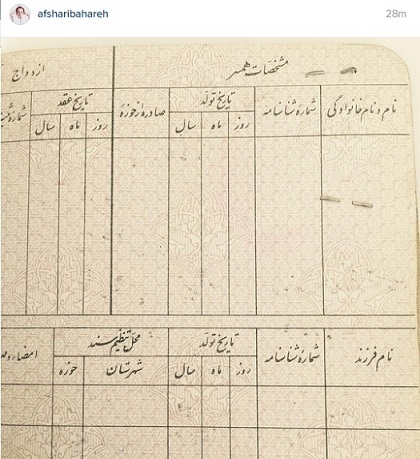 afsharibahareh
28m
مشخصات همسر
ازدواج
نام و نام خانوادگی
شماره شناسنامه
تاریخ تولد
روز
ماه
سال
صادره از حوزه
تاریخ عقد
روز
ماه
سال
نام فرزند
شماره شناسنامه
تاریخ تولد
روز
ماه
سال
محل تنظیم سند
شهرستان
حوزه